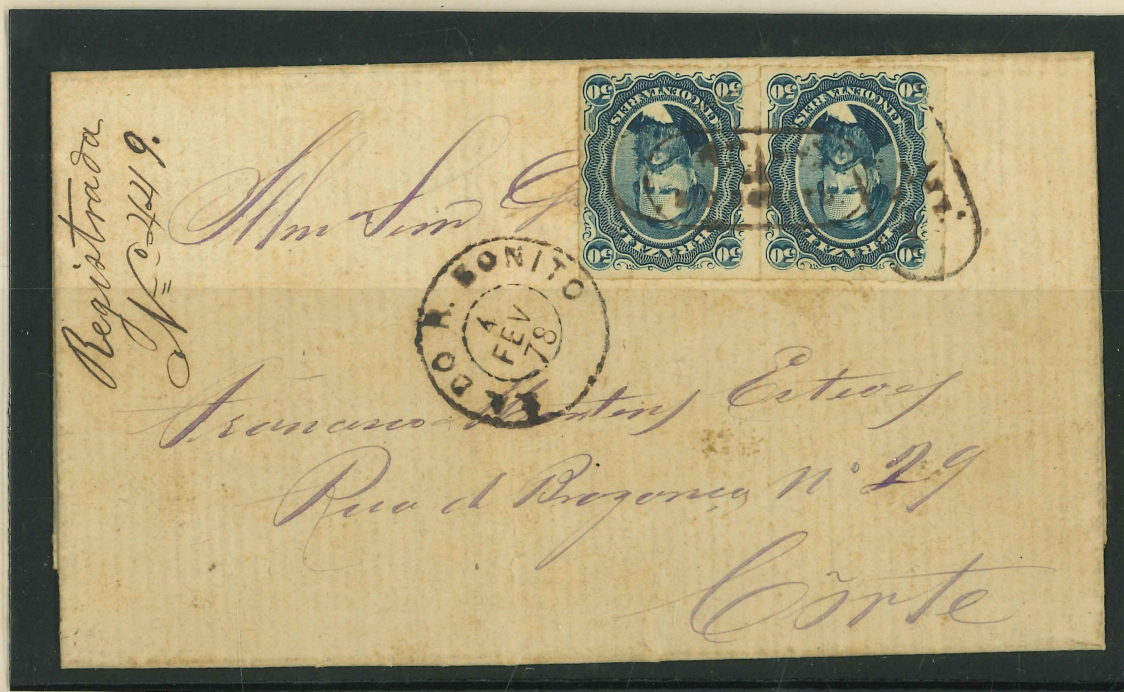 Registrada
Nº 449.
Illm Snr
50 50
CINCOENTA REIS
BRAZIL
50 50
50 50
CINCOENTA REIS
BRAZIL
50 50
DO R. BONITO
4
FEV
78
Francisco Martins Esteves
Rua d Bragança Nº 29
Côrte